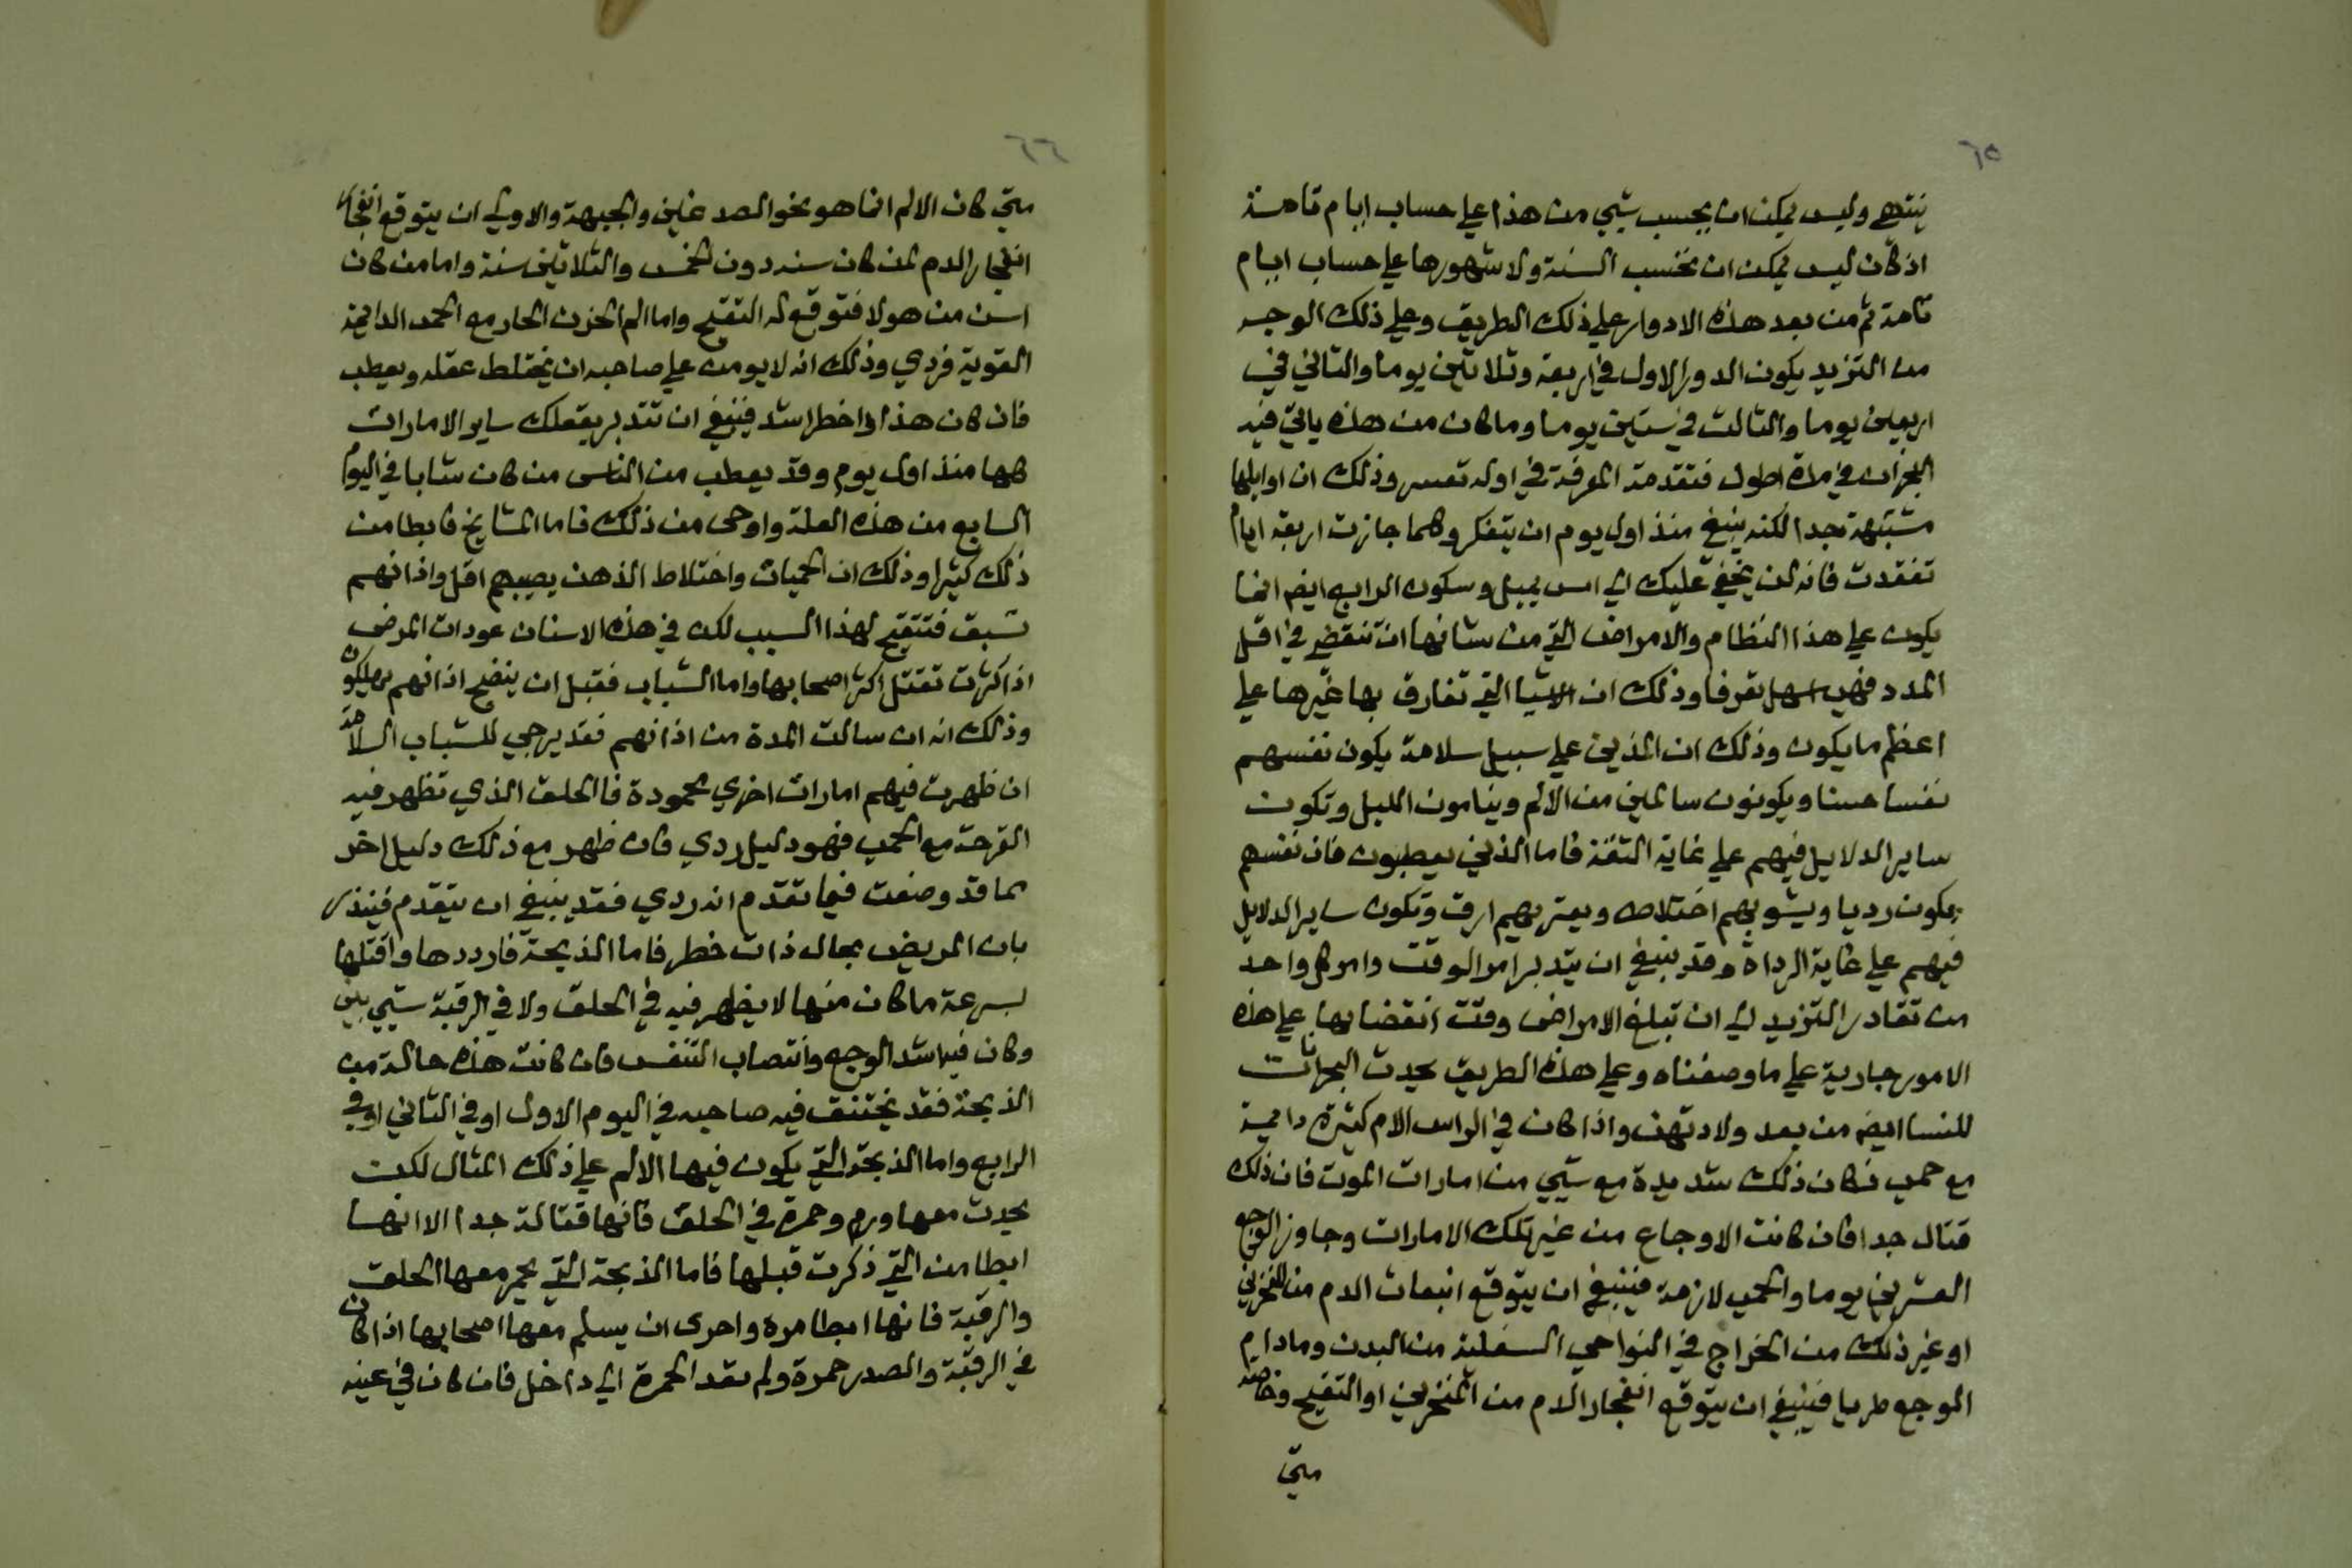 ٦٥
ينتهي وليس يمكن ان يحسب شي من هذا علي حساب ايام تامة
اذ كان ليس يمكن ان تحتسب السنة ولا شهورها علي حساب ايام
تامة ثم من بعد هذه الادوار علي ذلك الطريق وعلي ذلك الوجه
من التزيد يكون الدور الاول في اربعة وثلاثين يوما والثاني في
اربعين يوما والثالث في ستين يوما وما كان من هذه ياتي فيه
البحران في مدة اطول فتقدمة المعرفة في اوله تعسر وذلك ان اوايلها
مشتبهة جدا لكنه ينبغي منذ اول يوم ان يتفكر وكلما جازت اربعة ايام
تفقدت فانه لن يخفي عليك الي اس يميل وسكون الرابع ايضا انما
يكون علي هذا النظام والامراض التي من شانها ان تنقضي في اقل
المدد فهي اسهل تعرفا وذلك ان الاشيا التي تفارق بها غيرها علي
اعظم ما يكون وذلك ان الذين علي سبيل سلامة يكون نفسهم
نفسا حسنا ويكونون سالمين من الالم وينامون الليل وتكون
ساير الدلايل فيهم علي غاية الثقة فاما الذين يعطبون فان نفسهم
يكون رديا ويشوبهم اختلاط ويعتريهم ارق وتكون ساير الدلايل
فيهم علي غاية الرداة وقد ينبغي ان يتدبر امر الوقت وامر كل واحد
من تقادر التزيد الي ان تبلغ الامراض وقت انقضايها علي هذه
الامور جارية علي ما وصفناه وعلي هذه الطريق يحدث البحرانات
للنسا ايضا من بعد ولادتهن واذا كان في الراس الام كثيرة دايمة
مع حمى فكان ذلك شديدة مع شي من امارات الموت فان ذلك
قتال جدا فان كانت الاوجاع من غير تلك الامارات وجاوز الوجع
العشرين يوما والحمى لازمة فينبغي ان يتوقع انبعاث الدم من المنخرين
او غير ذلك من الخراج في النواحي السفلية من البدن وما دام
الوجع طريا فينبغي ان يتوقع انفجار الدم من المنخرين او التقيح وخاصة
متي
٦٦
متي كان الالم انما هو نحو الصدغين والجبهة والاولي ان يتوقع انفجار
انفجار الدم لمن كان سنه دون الخمس والثلاثين سنة واما من كان
اسن من هولا فتوقع له التقيح واما الم الاذن الحار مع الحمى الدايمة
القوية فردي وذلك انه لا يومن علي صاحبه ان يختلط عقله ويعطب
فان كان هذا اذا خطرا شد فينبغي ان تتدبر بعقلك ساير الامارات
كلها منذ اول يوم وقد يعطب من الناس من كان شابا في اليوم
السابع من هذه العلة واوحى من ذلك فاما المشايخ فابطا من
ذلك كثيرا وذلك ان الحميات واختلاط الذهن يصيبهم اقل واذانهم
تسبق فتتقيح لهذا السبب لكن في هذه الاسنان عودات المرض
اذا كثرت تقتل اكثر اصحابها واما الشباب فقبل ان ينضج اذانهم يهلكون
وذلك انه ان سالت المدة من اذانهم فقد يرجي للشباب السلامة
ان ظهرت فيهم امارات اخري محمودة فالحلق الذي تظهر فيه
القرحة مع الحمى فهو دليل ردي فان ظهر مع ذلك دليل اخر
مما قد وصفت فيما تقدم انه ردي فقد ينبغي ان يتقدم فينذر
بان المريض بحال ذات خطر فاما الذبحة فارددها واقتلها
بسرعة ما كان منها لا يظهر فيه في الحلق ولا في الرقبة شي بين
وكان فيها اشد الوجع وانتصاب التنفس فان كانت هذه حالة من
الذبحة فقد يختنق فيه صاحبه في اليوم الاول او في الثاني او في
الرابع واما الذبحة التي يكون فيها الالم علي ذلك المثال لكن
يحدث معها ورم وحمرة في الحلق فانها قتالة جدا الا انها
ابطا من التي ذكرت قبلها فاما الذبحة التي يحمر معها الحلق
والرقبة فانها ابطا مرة واحرى ان يسلم معها اصحابها اذا كان
في الرقبة والصدر حمرة ولم تعد الحمرة الي داخل فان كان في عينه